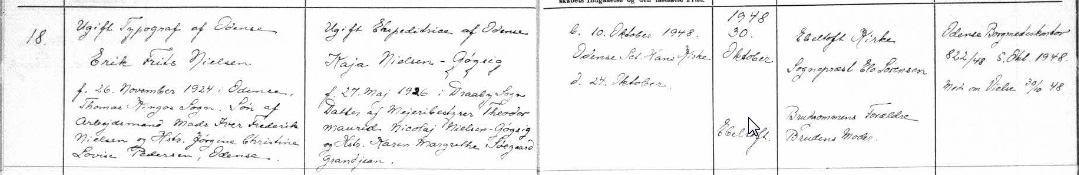 skabets Indgaaelse og den udstedte Prøve.
18.
Ugift Typograf af Odense
Erik Frits Nielsen
f. 26. November 1924 i Odense,
Thomas Kingos Sogn. Søn af
Arbejdsmand Mads Iver Frederik
Nielsen og Hstr. Jørgine Christine
Lovise Pedersen, Odense.
Ugift Ekspeditrice af Odense
Kaja Nielsen-Gøgsig
f. 27. Maj 1926 i Draaby Sogn
Datter af Mejeribestyrer Theodor
Maurids Nicolaj Nielsen-Gøgsig
og Hstr. Karen Margrethe
Grandjean.
b. 10. Oktober 1948.
Odense Sct. Hans Kirke
d. 24. Oktober.
1948
30.
Oktober
Ebeltoft.
Ebeltoft Kirke
Sognepræst Elo Sørensen
Brudgommens Forældre
Brudens Moder.
Odense Borgmesterkontor
822/48 5. Okt. 1948.
om Vielse 30/10 48